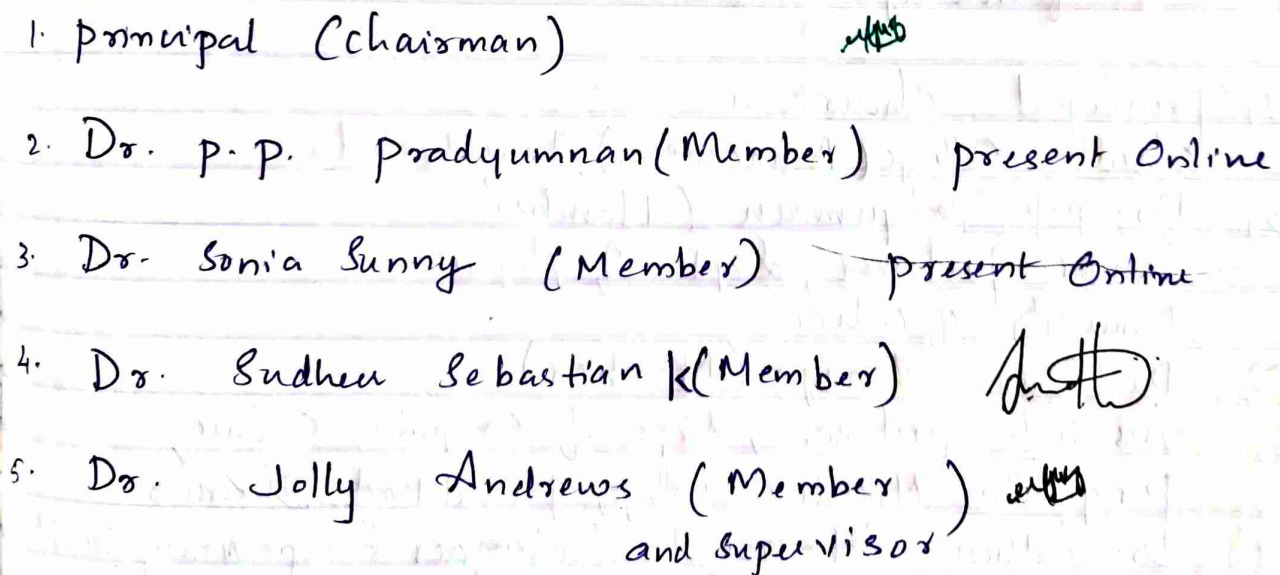 1. Principal (Chairman)
2. Dr. P. P. Pradyumnan (Member) present Online
3. Dr. Sonia Sunny (Member) present Online
4. Dr. Sudheer Sebastian K (Member)
5. Dr. Jolly Andrews (Member
and Supervisor)